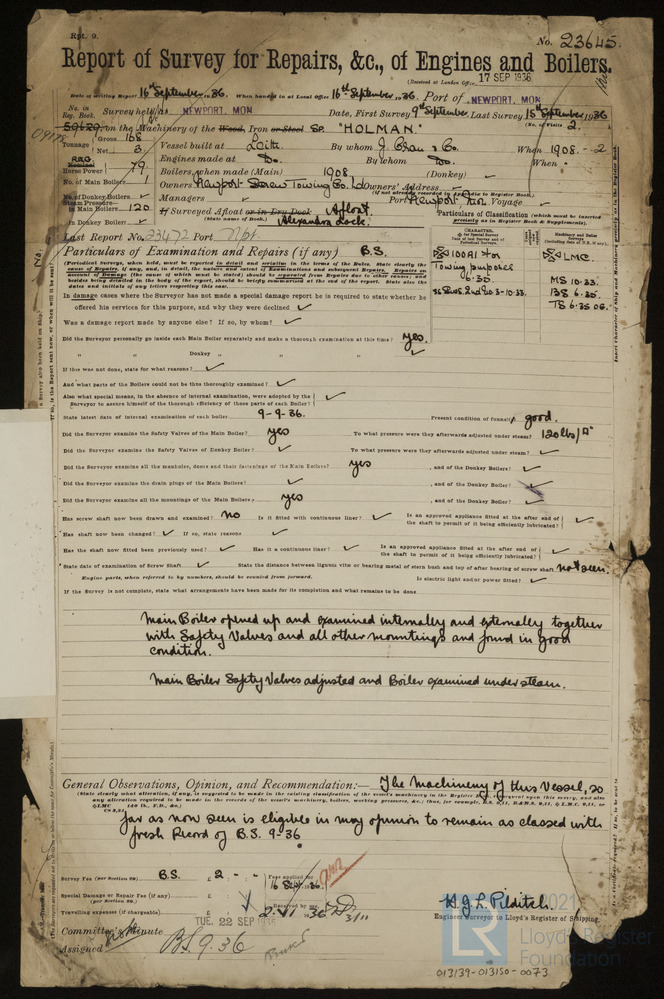 Rpt. 9.
No. 23645.
Report of Survey for Repairs, &c., of Engines and Boilers.
(Received at London Office 17 SEP 1936
Date of writing Report 16th September 1936. When handed in at Local Office 16th September 1936. Port of NEWPORT, MON
No. in Reg. Book. Survey held at NEWPORT, MON Date, First Survey 9th September Last Survey 15th September 1936
on the Machinery of the Wood, Iron or Steel SS. "HOLMAN." (No. of Visits 2.
Tonnage Gross 168 Net 3
Vessel built at Leith By whom J. Cran & Co. When 1908. - 2
Engines made at Do. By whom Do. When
Horse Power 79 Boilers, when made (Main) 1908 (Donkey)
No. of Main Boilers 1 Owners Newport Screw Towing Co. Ld Owners' Address
(if not already recorded in Appendix to Register Book.)
No. of Donkey Boilers Managers Port Newport Mon Voyage
Steam Pressure in Main Boilers 120 If Surveyed Afloat or in Dry Dock Afloat
in Donkey Boilers (State name of Dock.) Alexandra Dock.
Particulars of Classification (which must be inserted precisely as in Register Book & Supplements).
Last Report No. 23472 Port Npt
Particulars of Examination and Repairs (if any) B.S.
100A1 for Towing purposes 6.35.
SS Nws. 2nd No 3-10.33.
LMC.
MS 10.33.
BS 6.35.
TS 6.35 OG.
(Periodical Surveys, when held, must be reported in detail and seriatim in the terms of the Rules. State clearly the cause of Repairs, if any, and, in detail, the nature and extent of Examinations and subsequent Repairs. Repairs on account of Damage (the cause of which must be stated) should be separated from Repairs due to other causes; and besides being detailed in the body of the report, should be briefly summarised at the end of the report. State also the dates and initials of any letters respecting this case.
In damage cases where the Surveyor has not made a special damage report he is required to state whether he
offered his services for this purpose, and why they were declined
Was a damage report made by anyone else? If so, by whom?
Did the Surveyor personally go inside each Main Boiler separately and make a thorough examination at this time? yes.
" " Donkey " " "
If this was not done, state for what reasons?
And what parts of the Boilers could not be thus thoroughly examined?
Also what special means, in the absence of internal examination, were adopted by the
Surveyor to assure himself of the thorough efficiency of those parts of each Boiler?
State latest date of internal examination of each boiler 9-9-36. Present condition of funnel(s) good.
Did the Surveyor examine the Safety Valves of the Main Boiler? yes To what pressure were they afterwards adjusted under steam? 120 lbs/□"
Did the Surveyor examine the Safety Valves of Donkey Boiler? To what pressure were they afterwards adjusted under steam?
Did the Surveyor examine all the manholes, doors and their fastenings of the Main Boilers? yes , and of the Donkey Boiler?
Did the Surveyor examine the drain plugs of the Main Boilers? , and of the Donkey Boiler?
Did the Surveyor examine all the mountings of the Main Boilers, yes , and of the Donkey Boiler?
Has screw shaft now been drawn and examined? No Is it fitted with continuous liner? Is an approved appliance fitted at the after end of the shaft to permit of it being efficiently lubricated?
Has shaft now been changed? If so, state reasons
Has the shaft now fitted been previously used? Has it a continuous liner? Is an approved appliance fitted at the after end of the shaft to permit of it being efficiently lubricated?
State date of examination of Screw Shaft State the distance between lignum vitæ or bearing metal of stern bush and top of after bearing of screw shaft not seen.
Engine parts, when referred to by numbers, should be counted from forward. Is electric light and/or power fitted?
If the Survey is not complete, state what arrangements have been made for its completion and what remains to be done
Main Boiler opened up and examined internally and externally together
with Safety Valves and all other mountings and found in good
condition.
Main Boiler Safety Valves adjusted and Boiler examined under steam.
General Observations, Opinion, and Recommendation:— The Machinery of this Vessel, so
far as now seen is eligible in my opinion to remain as classed with
fresh Record of B.S. 9.36
Survey Fee (per Section 29) B.S. £ 2. - - Fees applied for 16 Sep 1936.
Special Damage or Repair Fee (if any) (per Section 29.)
Travelling expenses (if chargeable) Received by me,
H.G.L. Pilditch.
Engineer Surveyor to Lloyd's Register of Shipping.
TUE. 22 SEP 1936
Committee's Minute
Assigned BS 9.36
2021
LR
Lloyd's Register
Foundation
013139-013150-0073